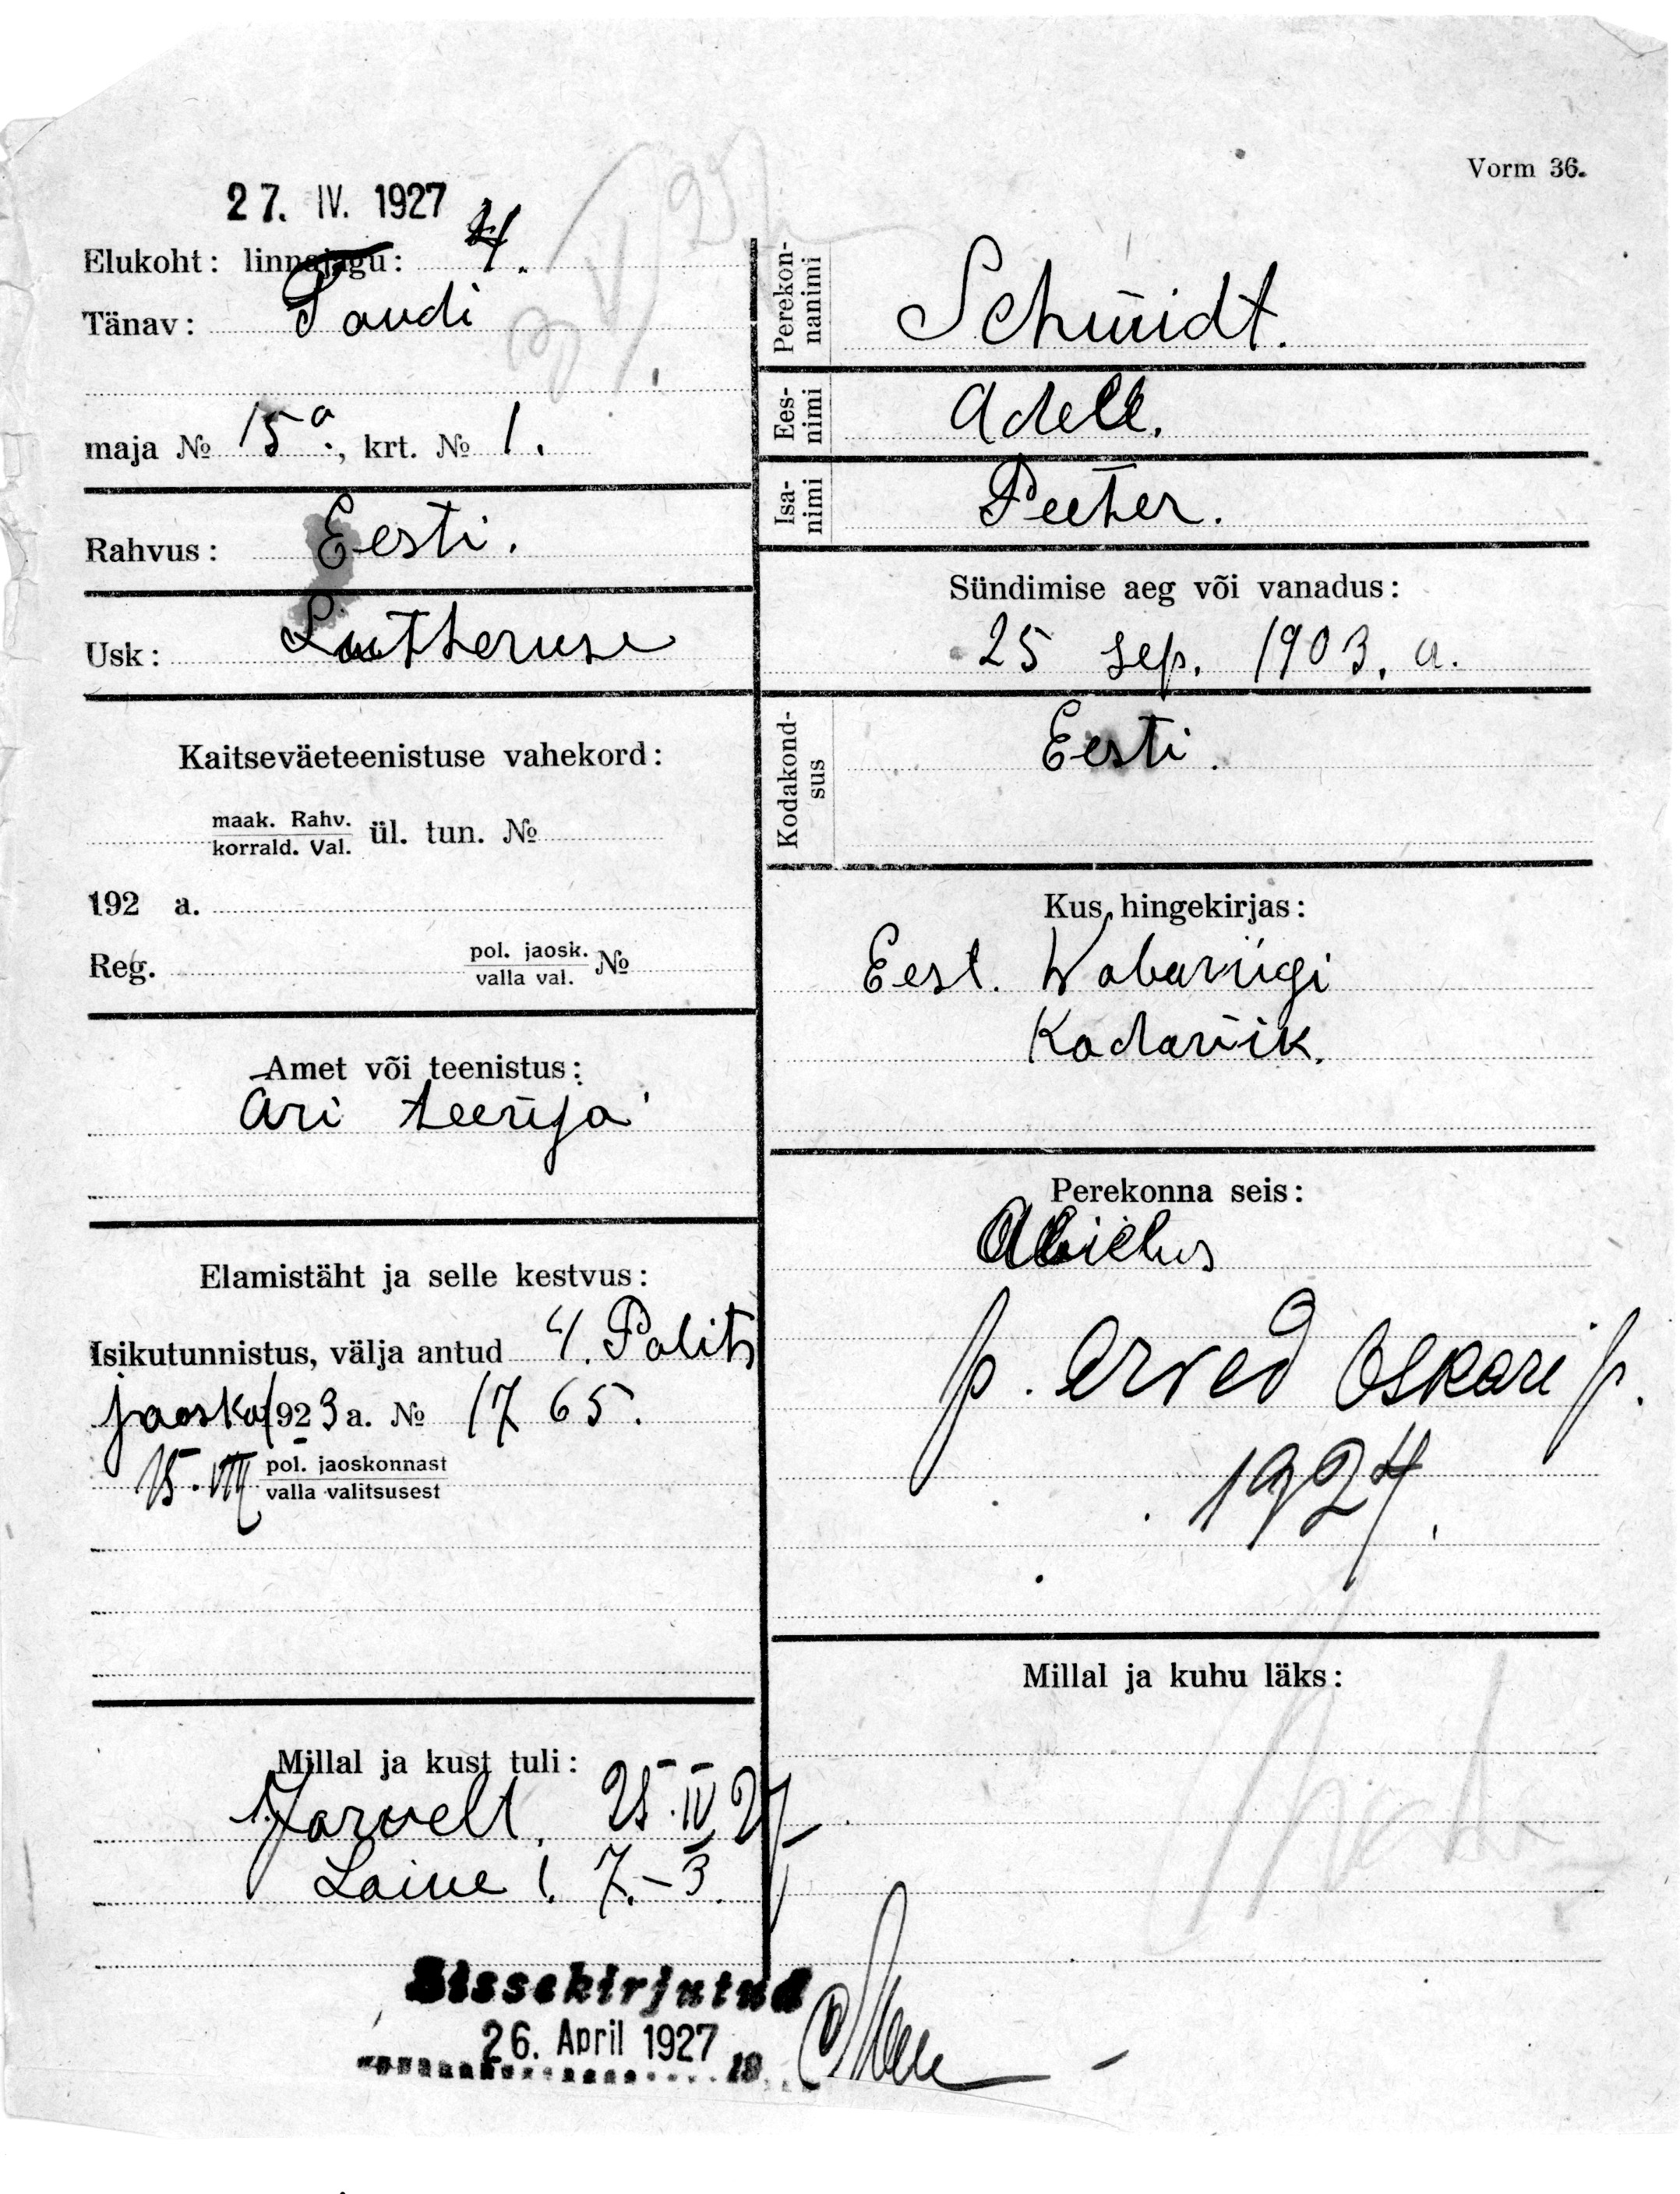 Vorm 36.
27. IV. 1927
Elukoht: linnajagu: 4.
Tänav: Taudi
maja № 15a., krt. № 1.
Rahvus: Eesti.
Usk: Lutheruse
Kaitseväeteenistuse vahekord:
maak. Rahv.
korrald. Val. ül. tun. №
192 a.
Reg. pol. jaosk. №
valla val.
Amet või teenistus:
Äri teenija
Elamistäht ja selle kestvus:
Isikutunnistus, välja antud 4. Polits
jaosko 1923 a. № 1765.
15. VIII pol. jaoskonnast
valla valitsusest
Millal ja kust tuli:
Järvelt, 25. IV 27
Laine 1. 7. – 3.
Sissekirjutud
26. April 1927
19
Perekon-
nanimi Schmidt.
Ees-
nimi Adele.
Isa-
nimi Peeter.
Sündimise aeg või vanadus:
25 sep. 1903. a.
Kodakond-
sus Eesti.
Kus hingekirjas:
Eest. Wabariigi
Kodanik.
Perekonna seis:
Abielus
p. Arved Oskari p.
1924.
Millal ja kuhu läks: